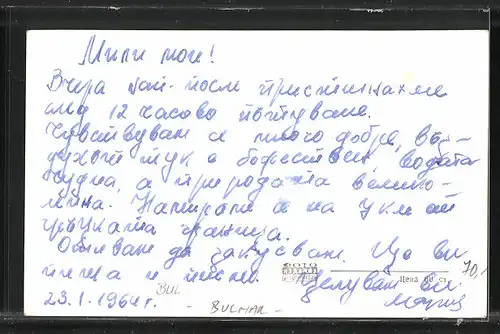 Мили мои!
Вчера най-после пристигнахме
след 12 часово пътуване.
Чувствувам се много добре, въз-
духът тук е божествен, водата
чудна, а природата велико-
лепна. Намирам се на 7 км от
гръцката граница.
Отивам да закусвам. Ще ви
пиша и писмо. Целувам ви
Мария
23.I.1964 г.
BUL
BULHAR
ФОТО
Цена 60 ст.
70,-